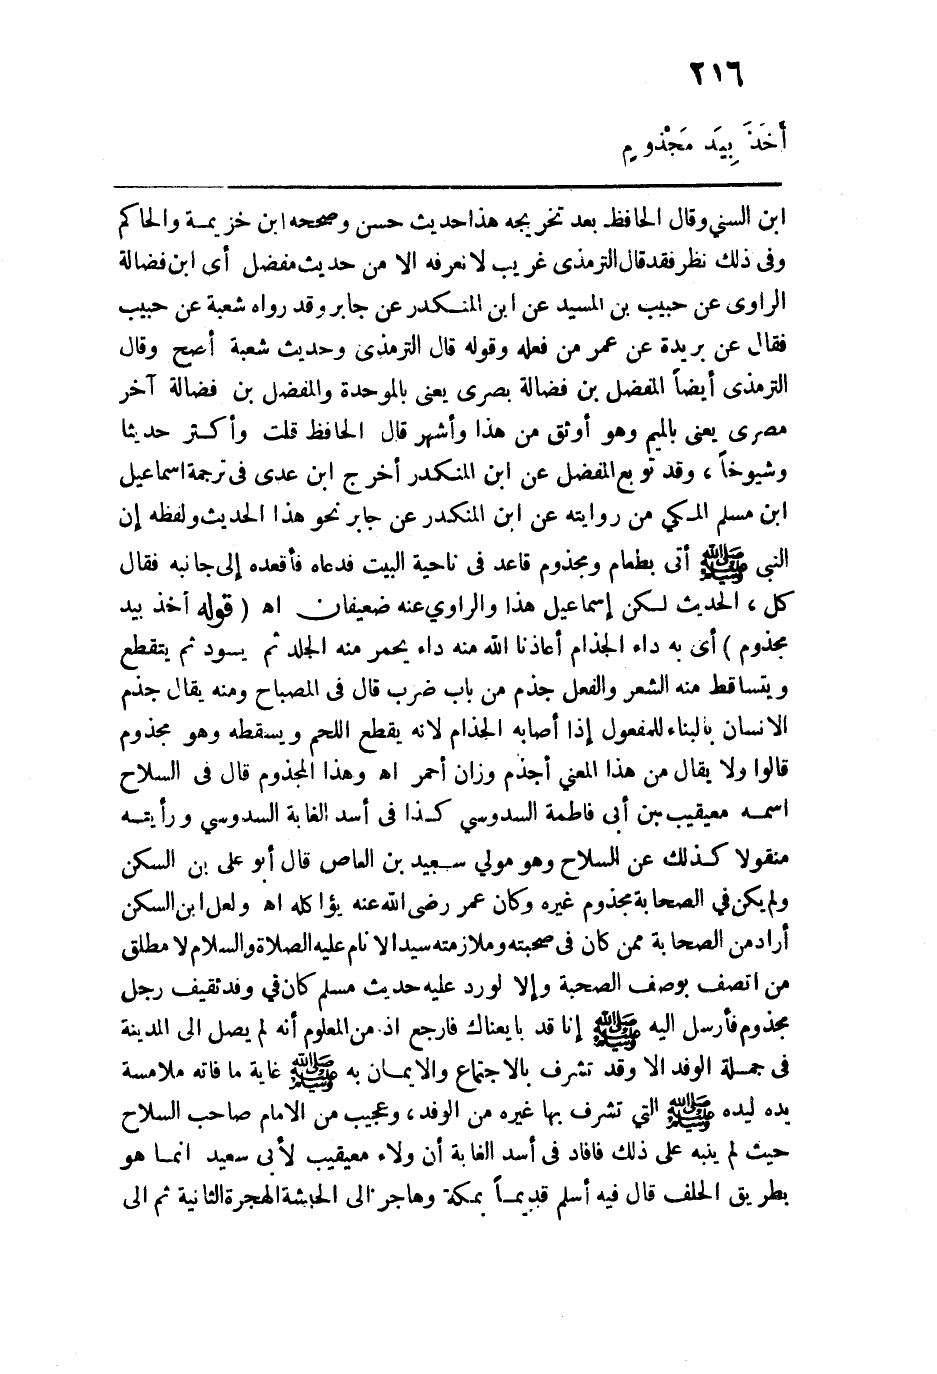 ٢١٦
أَخَذَ بِيَدِ مَجْذُومٍ
ابن السني وقال الحافظ بعد تخريجه هذا حديث حسن وصححه ابن خزيمة والحاكم
وفى ذلك نظر فقد قال الترمذى غريب لا نعرفه الا من حديث مفضل أى ابن فضالة
الراوى عن حبيب بن المسيد عن ابن المنكدر عن جابر وقد رواه شعبة عن حبيب
فقال عن بريدة عن عمر من فعله وقوله قال الترمذى وحديث شعبة أصح وقال
الترمذى أيضاً المفضل بن فضالة بصرى يعنى بالموحدة والمفضل بن فضالة آخر
مصرى يعنى بالميم وهو أوثق من هذا وأشهر قال الحافظ قلت وأكثر حديثا
وشيوخاً ، وقد توبع المفضل عن ابن المنكدر أخرج ابن عدى فى ترجمة اسماعيل
ابن مسلم المكي من روايته عن ابن المنكدر عن جابر نحو هذا الحديث ولفظه إن
النبى ﷺ أتى بطعام ومجذوم قاعد فى ناحية البيت فدعاه فأقعده إلى جانبه فقال
كل ، الحديث لكن إسماعيل هذا والراوي عنه ضعيفان اه ( قوله أخذ بيد
مجذوم ) أى به داء الجذام أعاذنا الله منه داء يحمر منه الجلد ثم يسود ثم يتقطع
ويتساقط منه الشعر والفعل جذم من باب ضرب قال فى المصباح ومنه يقال جذم
الانسان بالبناء للمفعول إذا أصابه الجذام لانه يقطع اللحم ويسقطه وهو مجذوم
قالوا ولا يقال من هذا المعني أجذم وزان أحمر اه وهذا المجذوم قال فى السلاح
اسمه معيقيب بن أبى فاطمة السدوسي كذا فى أسد الغابة السدوسي ورأيته
منقولا كذلك عن السلاح وهو مولي سعيد بن العاص قال أبو على بن السكن
ولم يكن في الصحابة مجذوم غيره وكان عمر رضى الله عنه يؤاكله اه ولعل ابن السكن
أراد من الصحابة ممن كان فى صحبته وملازمته سيد الانام عليه الصلاة والسلام لا مطلق
من اتصف بوصف الصحبة وإلا لورد عليه حديث مسلم كان في وفد ثقيف رجل
مجذوم فأرسل اليه ﷺ إنا قد بايعناك فارجع اذ من المعلوم أنه لم يصل الى المدينة
فى جملة الوفد الا وقد تشرف بالاجتماع والايمان به ﷺ غاية ما فاته ملامسة
يده ليده ﷺ التي تشرف بها غيره من الوفد ، وعجيب من الامام صاحب السلاح
حيث لم ينبه على ذلك فافاد فى أسد الغابة أن ولاء معيقيب لأبى سعيد انما هو
بطريق الحلف قال فيه أسلم قديماً بمكة وهاجر الى الحبشة الهجرة الثانية ثم الى